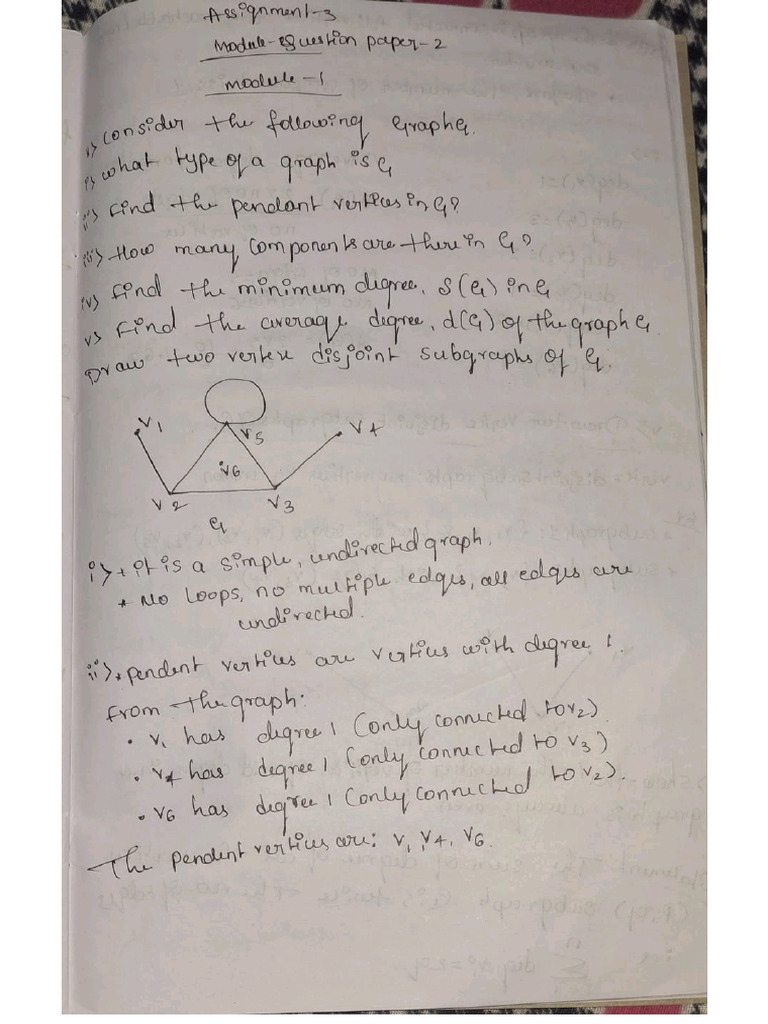 Assignment-3
Module-Question paper-2
Module-1
1> Consider the following Graph G.
i> what type of a graph is G
ii> Find the pendant vertices in G?
iii> How many components are there in G?
iv> find the minimum degree, δ(G) in G
v> Find the average degree, d(G) of the graph G.
Draw two vertex disjoint subgraphs of G.
V1
V5
V4
V6
V2
V3
G
i> * it is a simple, undirected graph.
* No loops, no multiple edges, all edges are
undirected.
ii> * pendent vertices are vertices with degree 1.
from the graph:
• V1 has degree 1 (only connected to V2).
• V4 has degree 1 (only connected to V3)
• V6 has degree 1 (only connected to V2).
The pendent vertices are: V1, V4, V6.